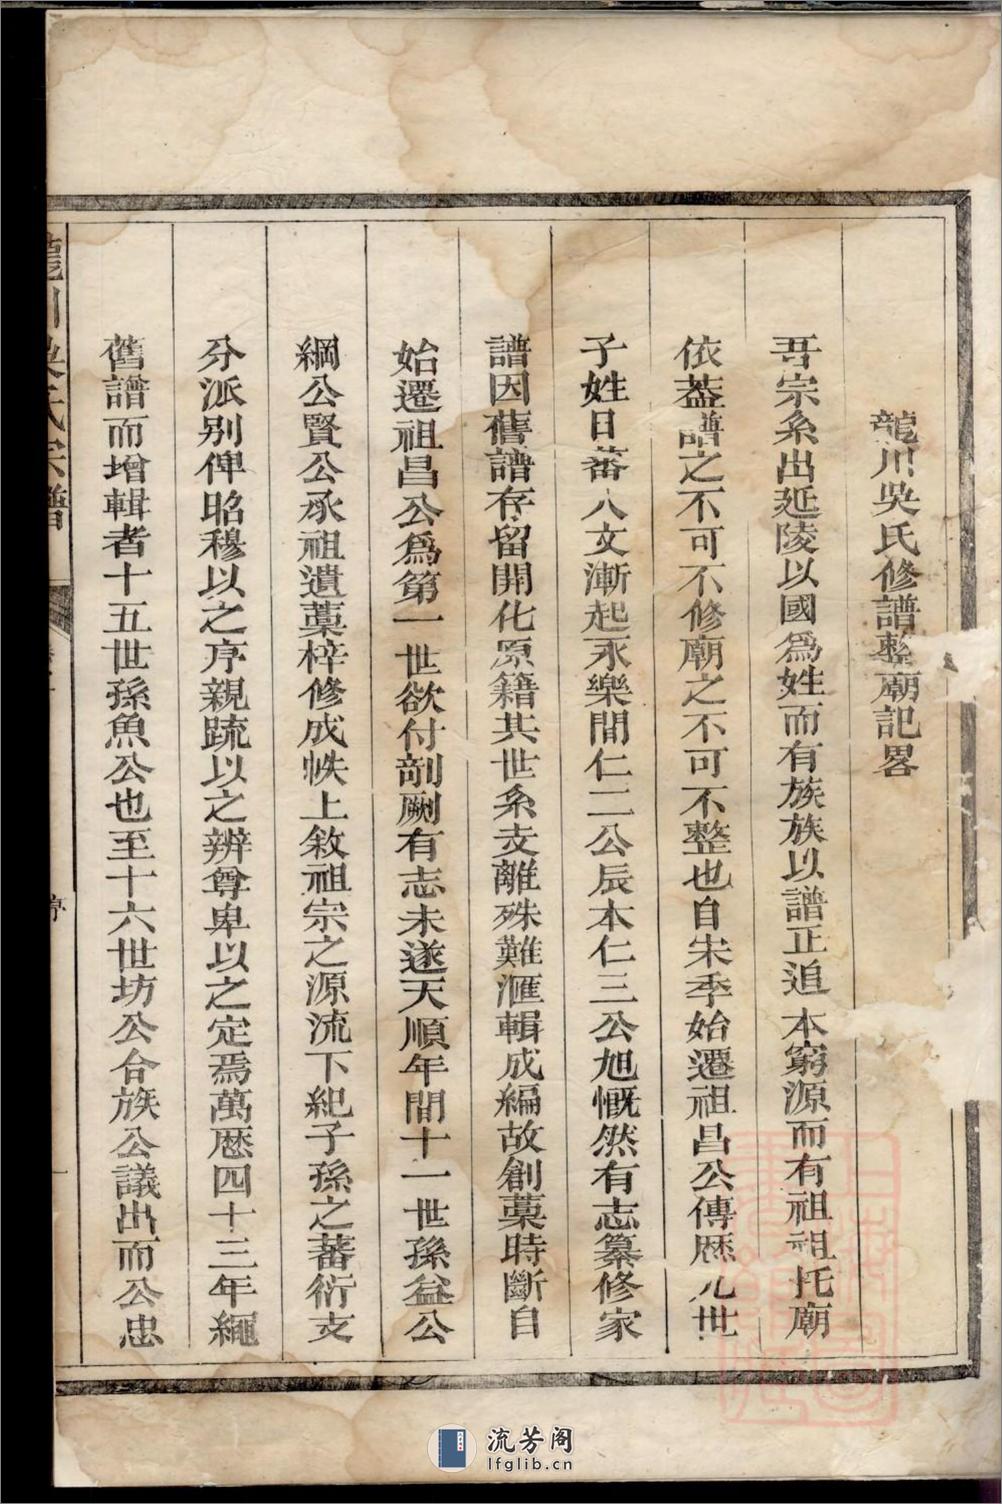 龍川吳氏修譜整廟記畧
吾宗系出延陵以國爲姓而有族族以譜正追本窮源而有祖祖托廟
依葢譜之不可不修廟之不可不整也自宋季始遷祖昌公傳歷九世
子姓日蕃人文漸起永樂間仁二公辰本仁三公旭慨然有志纂修家
譜因舊譜存留開化原籍其世系支離殊難滙輯成編故創藁時斷自
始遷祖昌公爲第一世欲付剞劂有志未遂天順年間十一世孫益公
綱公賢公承祖遺藁梓修成帙上敘祖宗之源流下紀子孫之蕃衍支
分派别俾昭穆以之序親疏以之辨尊卑以之定焉萬歷四十三年繩
舊譜而增輯者十五世孫魚公也至十六世坊公合族公議出而公忠
龍川吳氏宗譜
序
一
流芳阁
lfglib.cn